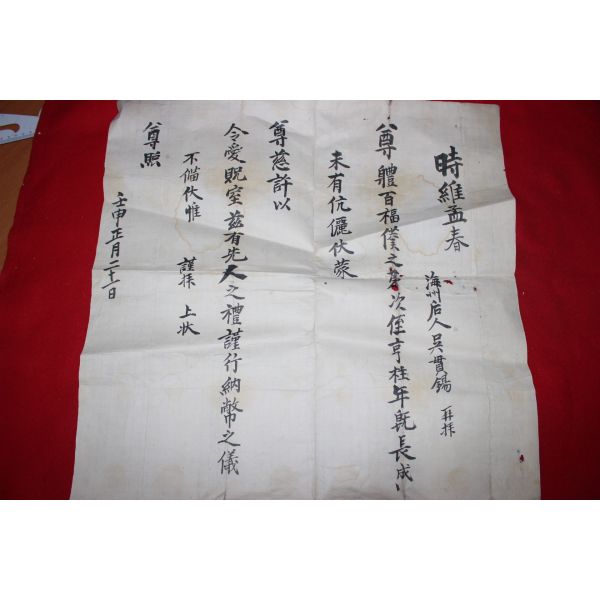 時維孟春
海州后人吳貫錫 再拜
尊體百福僕之第次侄亨桂年旣長成
未有伉儷伏蒙
尊慈許以
令愛貺室玆有先人之禮謹行納幣之儀
不備伏惟 謹拜 上狀
尊照
壬申正月二十一日